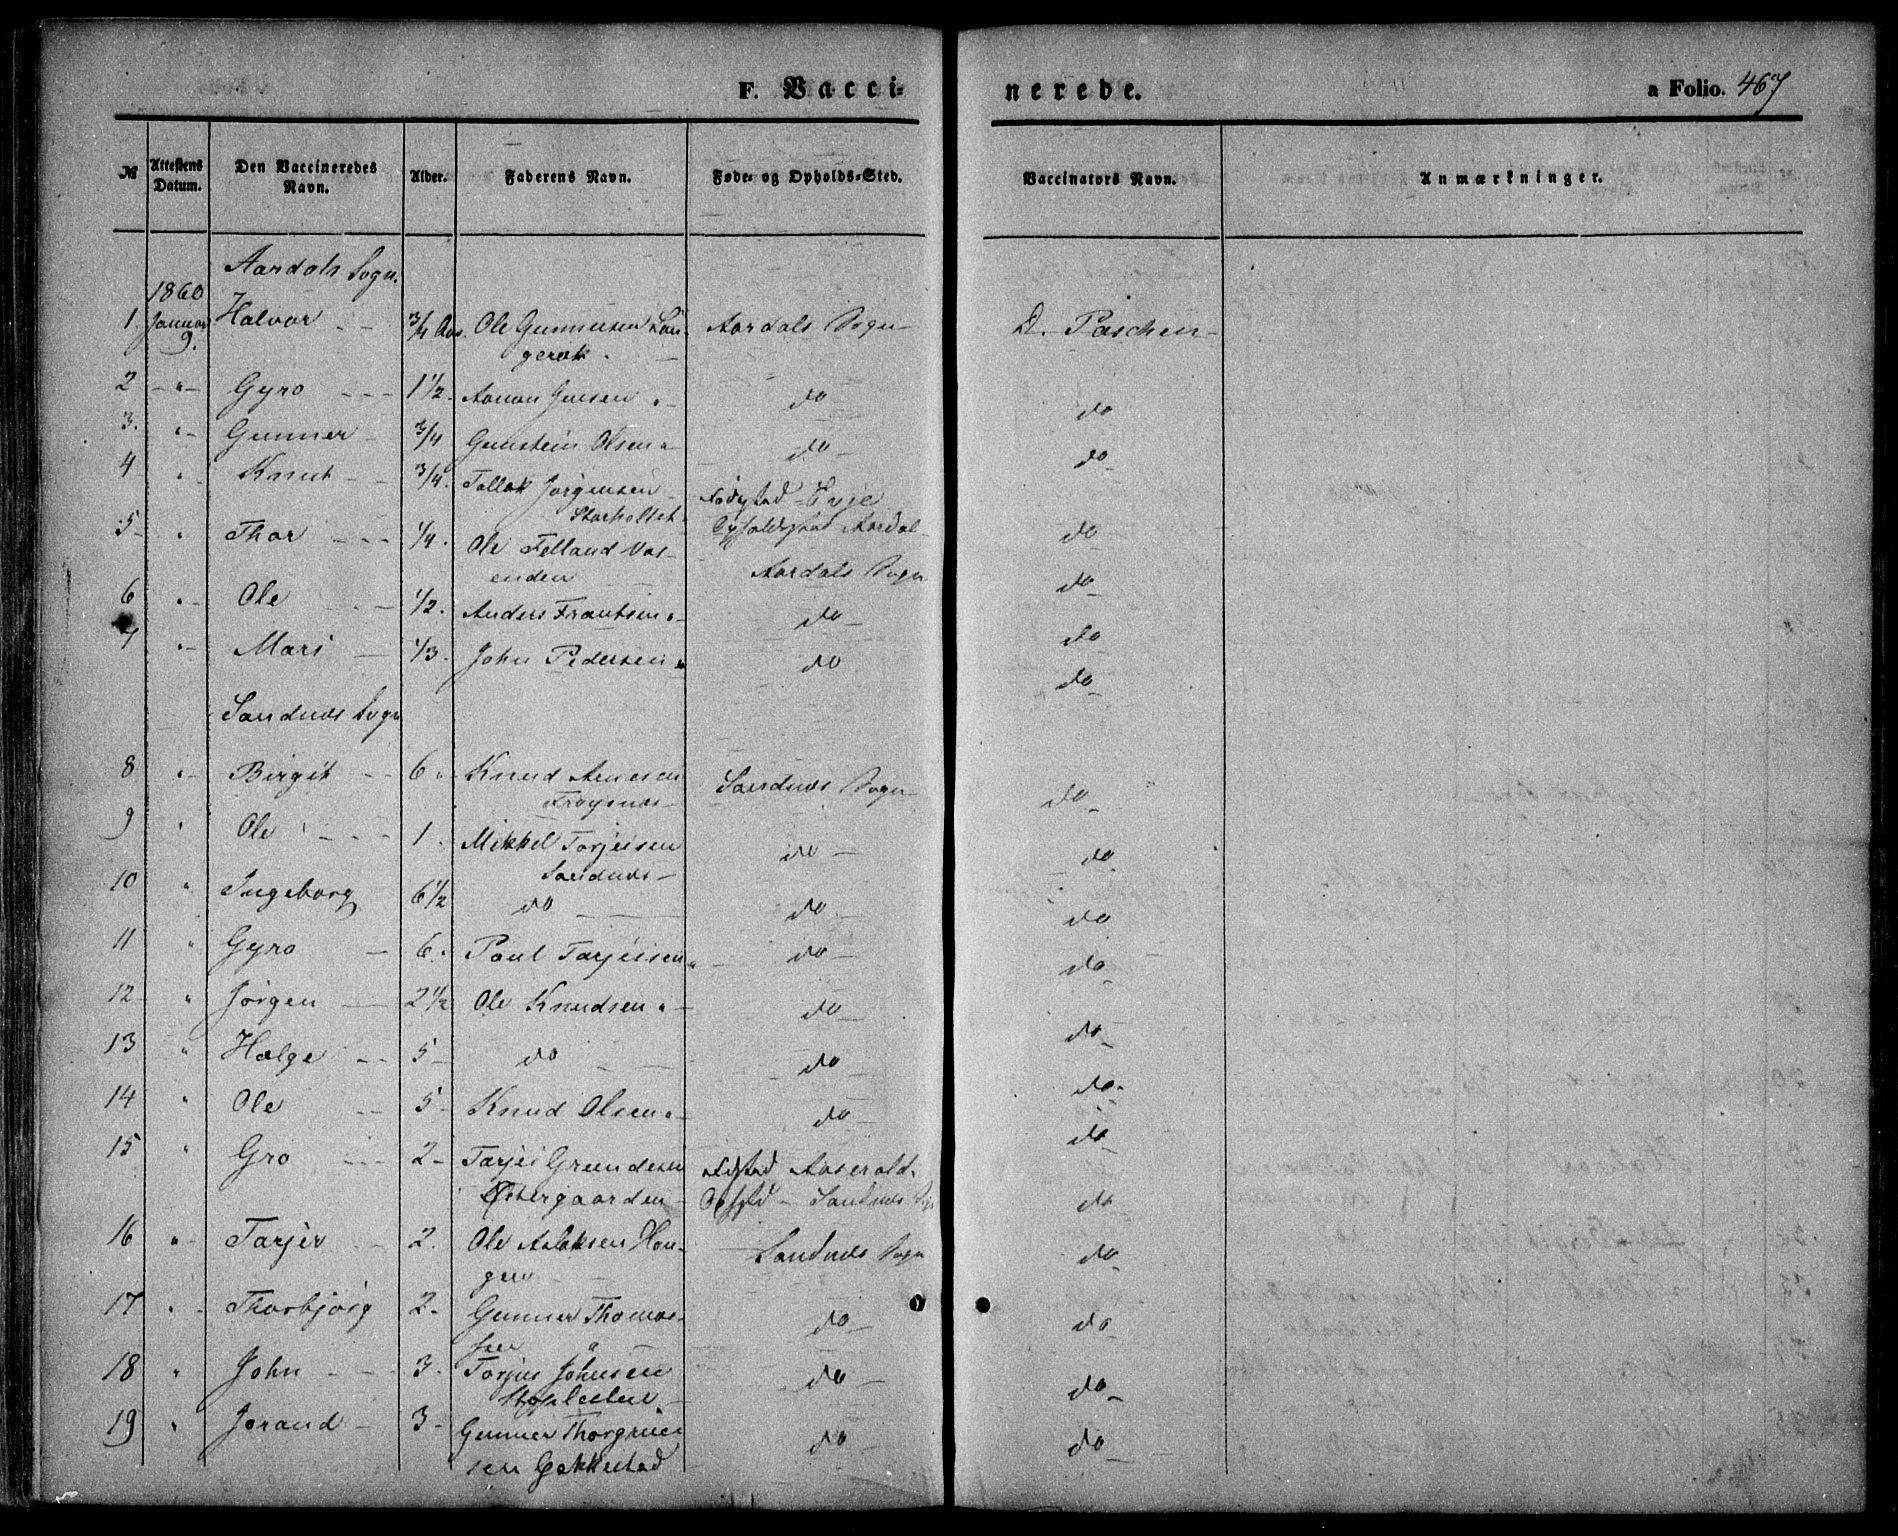 F. Vacci- nerede. a Folio. 467
№ Attestens Datum. Den Vaccineredes Navn. Alder. Faderens Navn. Føde- og Opholds-Sted. Vaccinators Navn. Anmærkninger.
Aardals Sogn.
1860
1. Januar 9. Halvor 3/4 Aar. Ole Gunnersen Lan- Aardals Sogn D. Paschen
gerak.
2 " Gyro 1 1/2. Aanon Jensen " do do
3. " Gunner 3/4 Gunstein Olsen " do do
4 " Knut 3/4. Tallak Jørgensen Fødested Evje
Storholtet Opholdsted Aardal do
5 " Thor 1/4. Ole Felland Vas-
enden Aardals Sogn do
6 " Ole 1/2. Anders Frantsen " do do
7 " Mari 1/3. John Pedersen " do do
Sandnæs Sogn
8 " Birgit 6 " Knud Arnesen Sandnæs Sogn do
Frøysnæs
9 " Ole 1. Mikkel Torjeisen do do
Sandnæs
10 " Ingeborg 6 1/2 do do do
11 " Gyro 6. Paul Tarjeisen " do do
12 " Jørgen 2 1/2 Ole Knudsen " do do
13 " Hælge 5 do do do
14 " Ole 5 Knud Olsen " do do
15 " Gro 2 Tarjei Gundersen Fdsted Aaserald.
Østergaarden Ophsted Sandnæs Sogn do
16 " Tarjer 2. Ole Aslaksen Hau- Sandnæs Sogn do
gen
17 " Thorbjørg 2 Gunner Thomas- do do
sen "
18 " John 3. Torjus Johnsen do do
19 " Jorand 3 Gunner Thorgrim- do do
sen Gakkestad